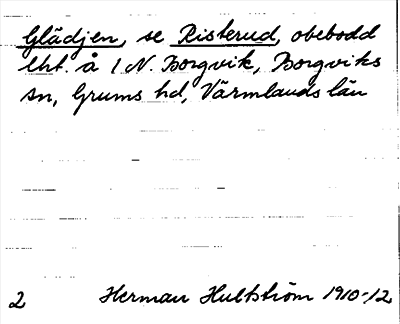 Glädjen, se Risterud, obebodd
lht. å 1 N. Borgvik, Borgviks
sn, Grums hd, Värmlands län
2 Herman Hultström 1910-12